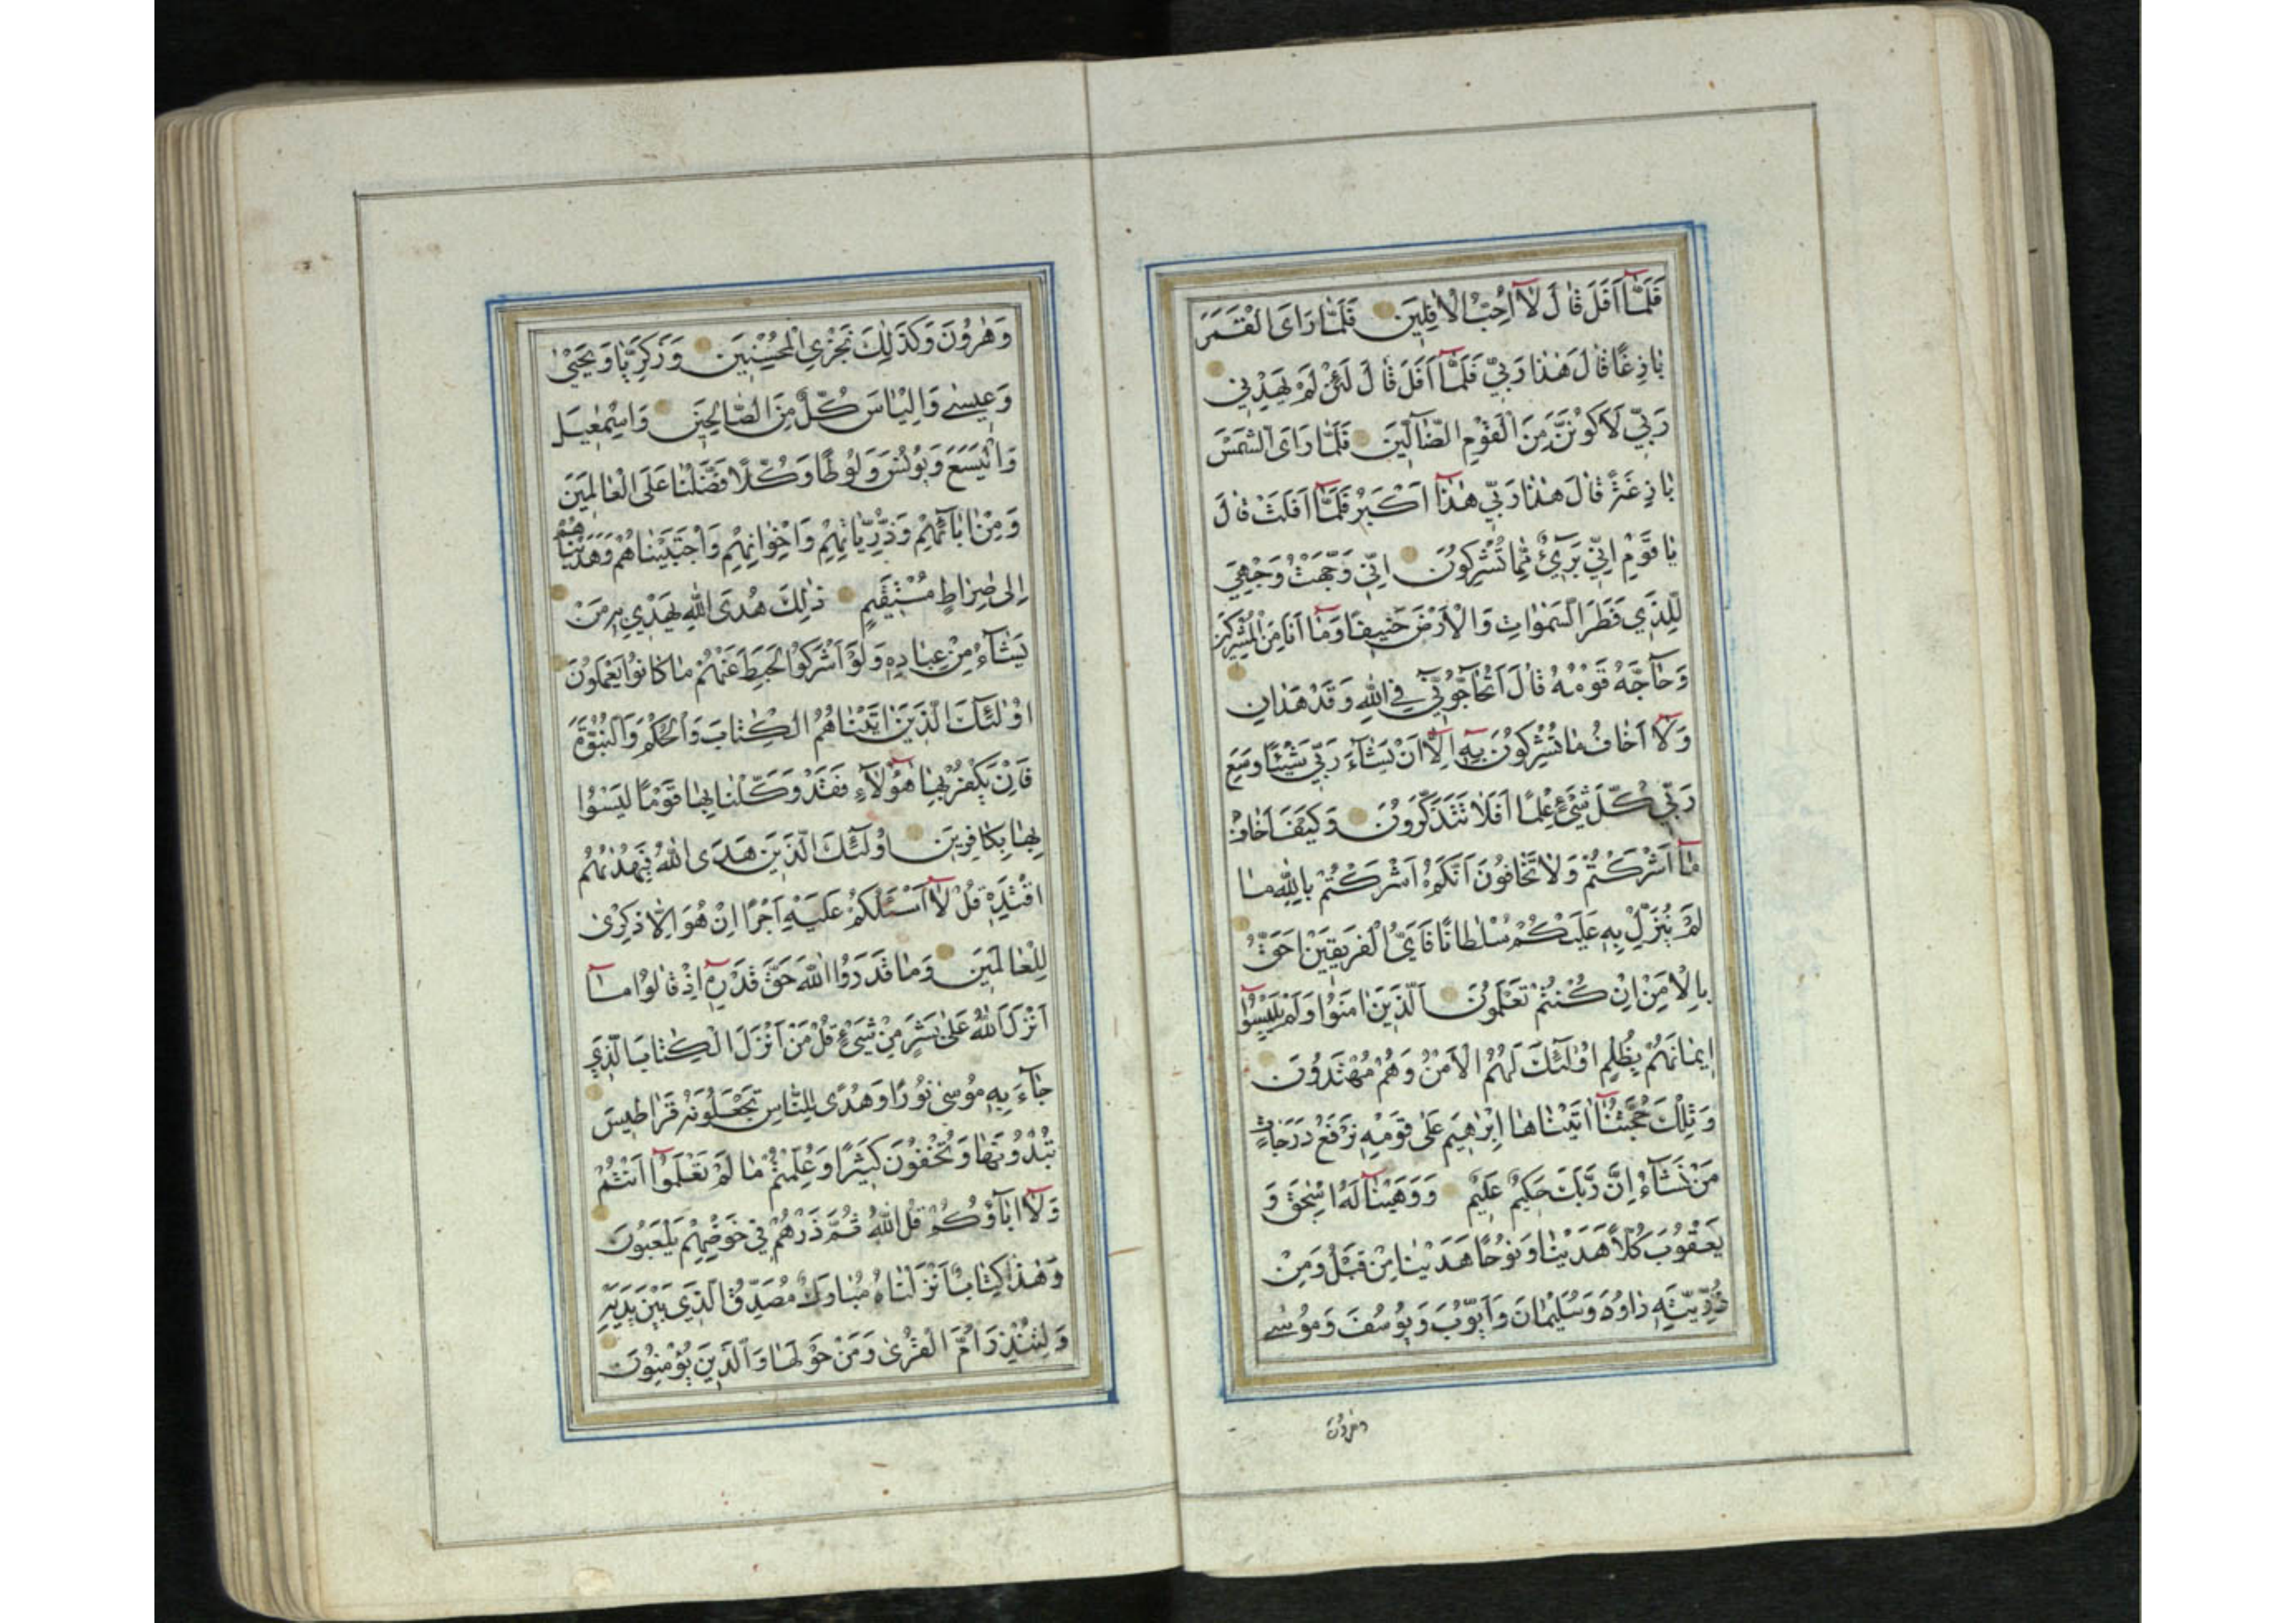 فَلَمَّآ اَفَلَ قٰالَ لٰآ اُحِبُّ الْاٰفِلِينَ فَلَمّٰا رَاَى الْقَمَرَ
بٰازِغًا قٰالَ هٰذٰا رَبّٖي فَلَمَّآ اَفَلَ قٰالَ لَئِنْ لَمْ يَهْدِنٖي
رَبّٖي لَاَكُونَنَّ مِنَ الْقَوْمِ الضّٰٓالّٖينَ فَلَمّٰا رَاَى الشَّمْسَ
بٰازِغَةً قٰالَ هٰذٰا رَبّٖي هٰذٰآ اَكْبَرُ فَلَمَّآ اَفَلَتْ قٰالَ
يٰا قَوْمِ اِنّٖي بَرٖيٓءٌ مِمّٰا تُشْرِكُونَ اِنّٖي وَجَّهْتُ وَجْهِيَ
لِلَّذٖي فَطَرَ السَّمٰوٰاتِ وَالْاَرْضَ حَنٖيفًا وَمٰآ اَنَا مِنَ الْمُشْرِكٖينَ
وَحٰٓاجَّهُ قَوْمُهُ قٰالَ اَتُحٰٓاجُّٓونّٖي فِي اللّٰهِ وَقَدْ هَدٰانِ
وَلٰآ اَخٰافُ مٰا تُشْرِكُونَ بِهٖٓ اِلّٰآ اَنْ يَشٰٓاءَ رَبّٖي شَيْئًا وَسِعَ
رَبّٖي كُلَّ شَيْءٍ عِلْمًا اَفَلٰا تَتَذَكَّرُونَ وَكَيْفَ اَخٰافُ
مٰآ اَشْرَكْتُمْ وَلٰا تَخٰافُونَ اَنَّكُمْ اَشْرَكْتُمْ بِاللّٰهِ مٰا
لَمْ يُنَزِّلْ بِهٖ عَلَيْكُمْ سُلْطٰانًا فَاَيُّ الْفَرٖيقَيْنِ اَحَقُّ
بِالْاَمْنِ اِنْ كُنْتُمْ تَعْلَمُونَ اَلَّذٖينَ اٰمَنُوا وَلَمْ يَلْبِسُوٓا
اٖيمٰانَهُمْ بِظُلْمٍ اُولٰٓئِكَ لَهُمُ الْاَمْنُ وَهُمْ مُهْتَدُونَ
وَتِلْكَ حُجَّتُنٰآ اٰتَيْنٰاهٰا اِبْرٰهٖيمَ عَلٰى قَوْمِهٖ نَرْفَعُ دَرَجٰاتٍ
مَنْ نَشٰٓاءُ اِنَّ رَبَّكَ حَكٖيمٌ عَلٖيمٌ وَوَهَبْنٰا لَهُٓ اِسْحٰقَ وَ
يَعْقُوبَ كُلًّا هَدَيْنٰا وَنُوحًا هَدَيْنٰا مِنْ قَبْلُ وَمِنْ
ذُرِّيَّتِهٖ دٰاوُدَ وَسُلَيْمٰانَ وَاَيُّوبَ وَيُوسُفَ وَمُوسٰى
وهرون
وَهٰرُونَ وَكَذٰلِكَ نَجْزِي الْمُحْسِنٖينَ وَزَكَرِيّٰا وَيَحْيٰى
وَعٖيسٰى وَاِلْيٰاسَ كُلٌّ مِنَ الصّٰالِحٖينَ وَاِسْمٰعٖيلَ
وَالْيَسَعَ وَيُونُسَ وَلُوطًا وَكُلًّا فَضَّلْنٰا عَلَى الْعٰالَمٖينَ
وَمِنْ اٰبٰٓائِهِمْ وَذُرِّيّٰاتِهِمْ وَاِخْوٰانِهِمْ وَاجْتَبَيْنٰاهُمْ وَهَدَيْنٰاهُمْ
اِلٰى صِرٰاطٍ مُسْتَقٖيمٍ ذٰلِكَ هُدَى اللّٰهِ يَهْدٖي بِهٖ مَنْ
يَشٰٓاءُ مِنْ عِبٰادِهٖ وَلَوْ اَشْرَكُوا لَحَبِطَ عَنْهُمْ مٰا كٰانُوا يَعْمَلُونَ
اُولٰٓئِكَ الَّذٖينَ اٰتَيْنٰاهُمُ الْكِتٰابَ وَالْحُكْمَ وَالنُّبُوَّةَ
فَاِنْ يَكْفُرْ بِهٰا هٰٓؤُلٰٓاءِ فَقَدْ وَكَّلْنٰا بِهٰا قَوْمًا لَيْسُوا
بِهٰا بِكٰافِرٖينَ اُولٰٓئِكَ الَّذٖينَ هَدَى اللّٰهُ فَبِهُدٰيهُمُ
اقْتَدِهْ قُلْ لٰآ اَسْئَلُكُمْ عَلَيْهِ اَجْرًا اِنْ هُوَ اِلّٰا ذِكْرٰى
لِلْعٰالَمٖينَ وَمٰا قَدَرُوا اللّٰهَ حَقَّ قَدْرِهٖٓ اِذْ قٰالُوا مٰآ
اَنْزَلَ اللّٰهُ عَلٰى بَشَرٍ مِنْ شَيْءٍ قُلْ مَنْ اَنْزَلَ الْكِتٰابَ الَّذٖي
جٰٓاءَ بِهٖ مُوسٰى نُورًا وَهُدًى لِلنّٰاسِ تَجْعَلُونَهُ قَرٰاطٖيسَ
تُبْدُونَهٰا وَتُخْفُونَ كَثٖيرًا وَعُلِّمْتُمْ مٰا لَمْ تَعْلَمُوٓا اَنْتُمْ
وَلٰآ اٰبٰٓاؤُكُمْ قُلِ اللّٰهُ ثُمَّ ذَرْهُمْ فٖي خَوْضِهِمْ يَلْعَبُونَ
وَهٰذٰا كِتٰابٌ اَنْزَلْنٰاهُ مُبٰارَكٌ مُصَدِّقُ الَّذٖي بَيْنَ يَدَيْهِ
وَلِتُنْذِرَ اُمَّ الْقُرٰى وَمَنْ حَوْلَهٰا وَالَّذٖينَ يُؤْمِنُونَ